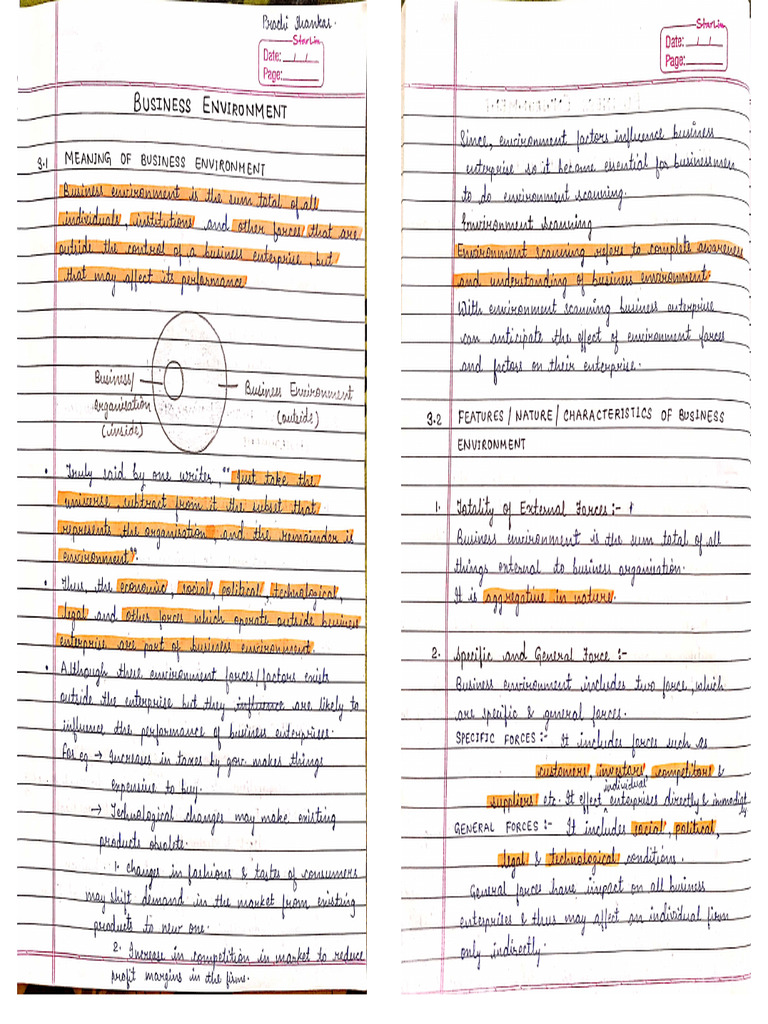 Prachi Jhankar.
StarLine
Date: / /
Page:
BUSINESS ENVIRONMENT
3.1 MEANING OF BUSINESS ENVIRONMENT
Business environment is the sum total of all
individuals, institutions and other forces that are
outside the control of a business enterprise, but
that may affect its performance
Business/
organisation
(inside)
Business Environment
(outside)
• Truly said by one writer, "Just take the
universe, subtract from it the subset that
represents the organisation, and the remainder is
environment".
• Thus, the economic, social, political, technological,
legal and other forces which operate outside business
enterprise are part of business environment
• Although these environment forces/factors exists
outside the enterprise but they influence are likely to
influence the performance of business enterprises.
For eg → Increases in taxes by gov. makes things
expensive to buy.
→ Technological changes may make existing
products obsolete.
1. changes in fashions & tastes of consumers
may shift demand in the market from existing
products to new one.
2. Increase in competition in market to reduce
profit margins in the firms.
StarLine
Date: / /
Page:
Since, environment factors influence business
enterprise so it become essential for businessmen
to do environment scanning.
Environment scanning
Environment scanning refers to complete awareness
and understanding of business environment.
With environment scanning business enterprise
can anticipate the effect of environment forces
and factors on their enterprise.
3.2 FEATURES/NATURE/CHARACTERISTICS OF BUSINESS
ENVIRONMENT
1. Totality of External Forces:-
Business environment is the sum total of all
things external to business organisation.
It is aggregative in nature.
2. Specific and General Force :-
Business environment includes two force, which
are specific & general forces.
SPECIFIC FORCES :- It includes forces such as
customers, investors, competitors &
individual
suppliers etc. It effect ^ enterprises directly & immediatly
GENERAL FORCES :- It includes social, political,
legal & technological conditions.
General forces have impact on all business
enterprises & thus may affect an individual firm
only indirectly.